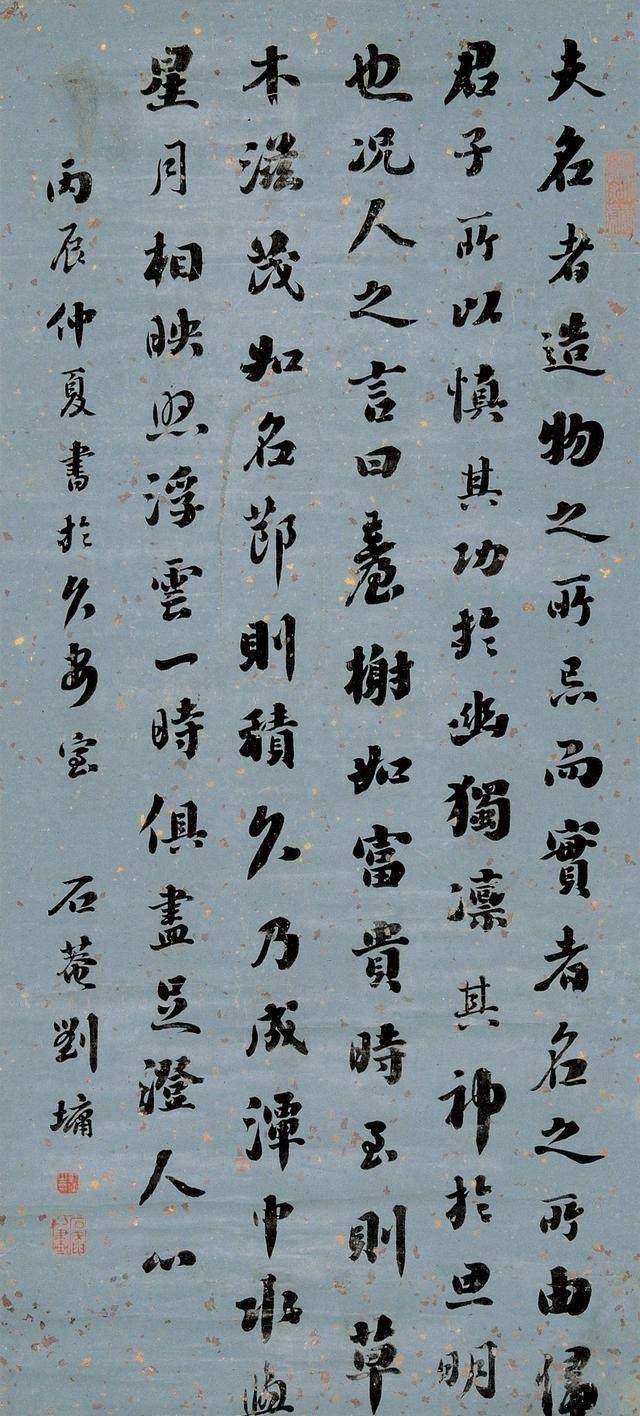 夫名者造物之所忌而實者名之所由
君子所以慎其功於幽獨凛其神於旦明
也况人之言曰臺榭如富貴時至則草
木滋茂如名節則積久乃成潭中水
星月相映照浮雲一時俱盡足澄人心
丙辰仲夏書於久安室
石菴劉墉